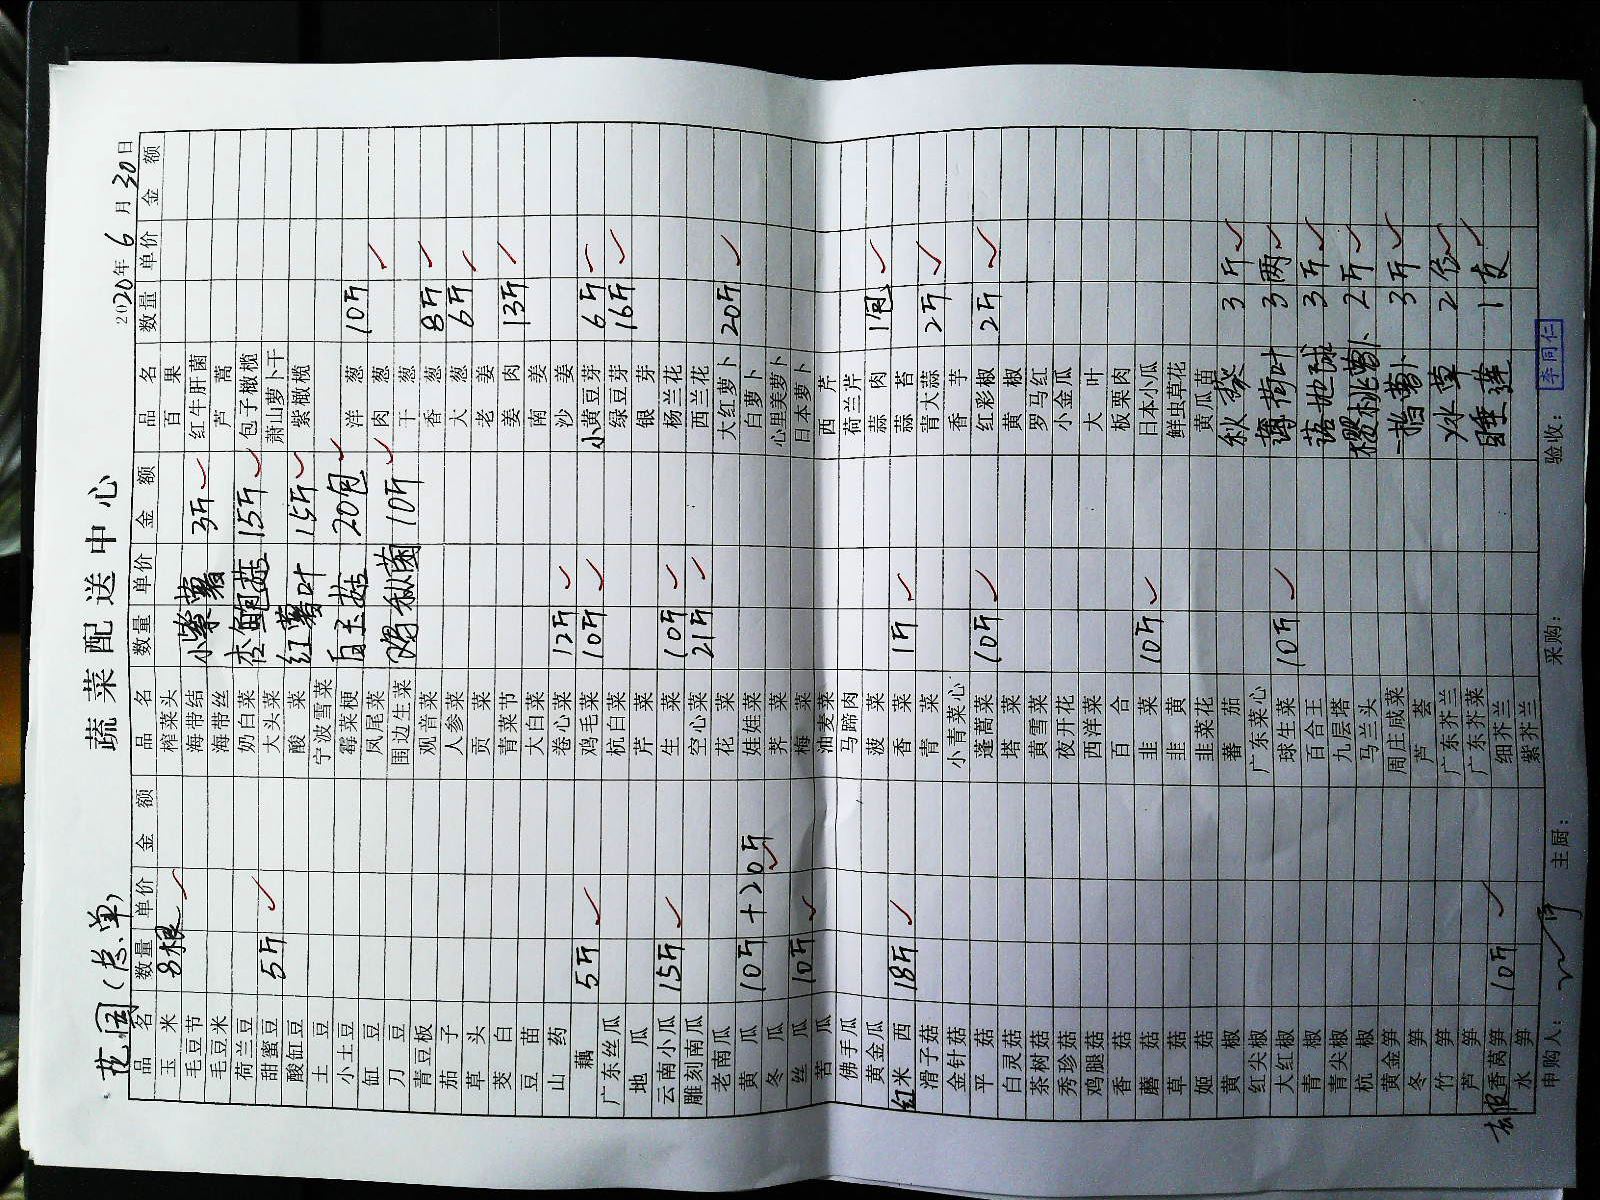 花园(总单)
蔬菜配送中心
2020年6月30日
品名 数量 单价 金额 品名 数量 单价 金额 品名 数量 单价 金额
玉米 8根 榨菜头 百果
毛豆节 海带结 小紫薯 3斤 红牛肝菌
毛豆米 海带丝 芦蒿
荷兰豆 奶白菜 杏鲍菇 15斤 包子橄榄
甜蜜豆 5斤 大头菜 萧山萝卜干
酸缸豆 酸菜 红薯叶 15斤 紫橄榄
土豆 宁波雪菜
小土豆 霉菜梗 白玉菇 20包 洋葱 10斤
缸豆 凤尾菜 肉葱
刀豆 围边生菜 鸡枞菌 10斤 干葱
青豆板 观音菜 香葱 8斤
茄子 人参菜 大葱 6斤
草头 贡菜 老姜
茭白 青菜节 姜肉 13斤
豆苗 大白菜 南姜
山药 卷心菜 12斤 沙姜
藕 5斤 鸡毛菜 10斤 小黄豆芽 6斤
广东丝瓜 杭白菜 绿豆芽 16斤
地瓜 芹菜 银芽
云南小瓜 15斤 生菜 10斤 杨兰花
雕刻南瓜 空心菜 21斤 西兰花
老南瓜 花菜 大红萝卜 20斤
黄瓜 10斤+20斤 娃娃菜 白萝卜
冬瓜 荠菜 心里美萝卜
丝瓜 10斤 梅菜 日本萝卜
苦瓜 油麦菜 西芹
佛手瓜 马蹄肉 荷兰芹
黄金瓜 菠菜 蒜肉 1包
红米西 18斤 香菜 1斤 蒜苔
滑子菇 青菜 青大蒜 2斤
金针菇 小青菜心 香芋
平菇 蓬蒿菜 10斤 红彩椒 2斤
白灵菇 塔菜 黄椒
茶树菇 黄雪菜 罗马红
秀珍菇 夜开花 小金瓜
鸡腿菇 西洋菜 大叶
香菇 百合 板栗肉
蘑菇 韭菜 10斤 日本小瓜
草菇 韭黄 鲜虫草花
姬菇 韭菜花 黄瓜苗
黄椒 蕃茄 秋葵 3斤
红尖椒 广东菜心
大红椒 球生菜 10斤 薄荷叶 3两
青椒 百合王 3斤
青尖椒 九层塔
杭椒 马兰头 樱桃萝卜 2斤
黄金笋 周庄咸菜 一指萝卜 3斤
冬笋 芦荟
竹笋 广东芥兰 冰草 2份
芦笋 广东芥菜
去皮香莴笋 10斤 细芥兰 睡莲 1支
水笋 紫芥兰
申购人： 主厨： 采购： 验收： 李同仁